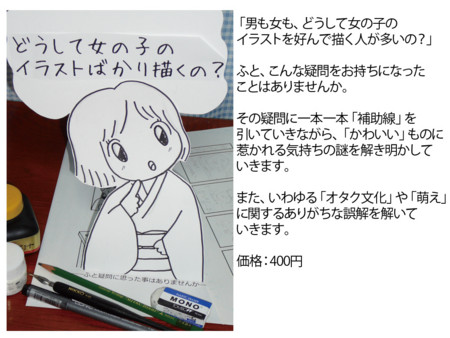 どうして女の子の
イラストばかり描くの?
ふと疑問に思った事はありませんか…
MONO
「男も女も、どうして女の子の
イラストを好んで描く人が多いの?」
ふと、こんな疑問をお持ちになった
ことはありませんか。
その疑問に一本一本「補助線」を
引いていきながら、「かわいい」ものに
惹かれる気持ちの謎を解き明かして
いきます。
また、いわゆる「オタク文化」や「萌え」
に関するありがちな誤解を解いて
いきます。
価格：400円